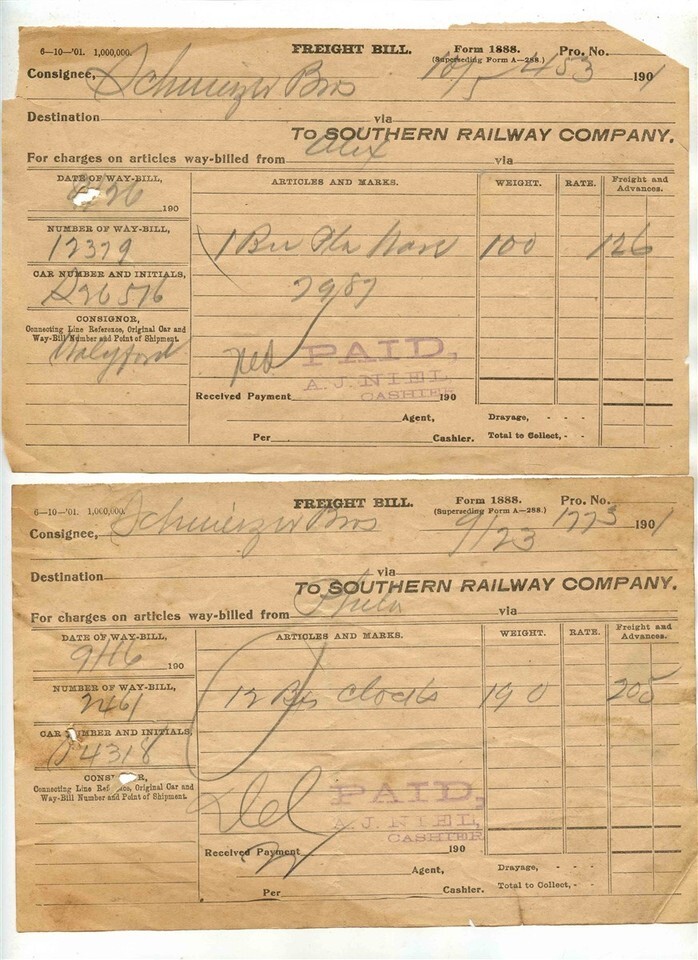 6-10-'01. 1,000,000. FREIGHT BILL. Form 1888. Pro. No.
(Superseding Form A—288.)
Consignee, Bros 10/5 453 1901
Destination via
To SOUTHERN RAILWAY COMPANY.
For charges on articles way-billed from Alex via
DATE OF WAY-BILL, ARTICLES AND MARKS. WEIGHT. RATE. Freight and Advances.
26 190
NUMBER OF WAY-BILL,
12379 1 Ware 100 126
CAR NUMBER AND INITIALS,
26576 2987
CONSIGNOR,
Connecting Line Reference, Original Car and
Way-Bill Number and Point of Shipment.
PAID,
A. J. NIEL
CASHIER
Received Payment 190
Agent, Drayage, - - -
Per Cashier. Total to Collect, - -
6-10-'01. 1,000,000. FREIGHT BILL. Form 1888. Pro. No.
(Superseding Form A—288.)
Consignee, Bros 9/23 1773 1901
Destination via
To SOUTHERN RAILWAY COMPANY.
For charges on articles way-billed from Phila via
DATE OF WAY-BILL, ARTICLES AND MARKS. WEIGHT. RATE. Freight and Advances.
9/16 190
NUMBER OF WAY-BILL,
2461 12 Bxs Clocks 190 205
CAR NUMBER AND INITIALS,
4318
CONSIGNOR,
Connecting Line Reference, Original Car and
Way-Bill Number and Point of Shipment.
Del PAID,
A. J. NIEL,
CASHIER
Received Payment 190
Agent, Drayage, - - -
Per Cashier. Total to Collect, - -